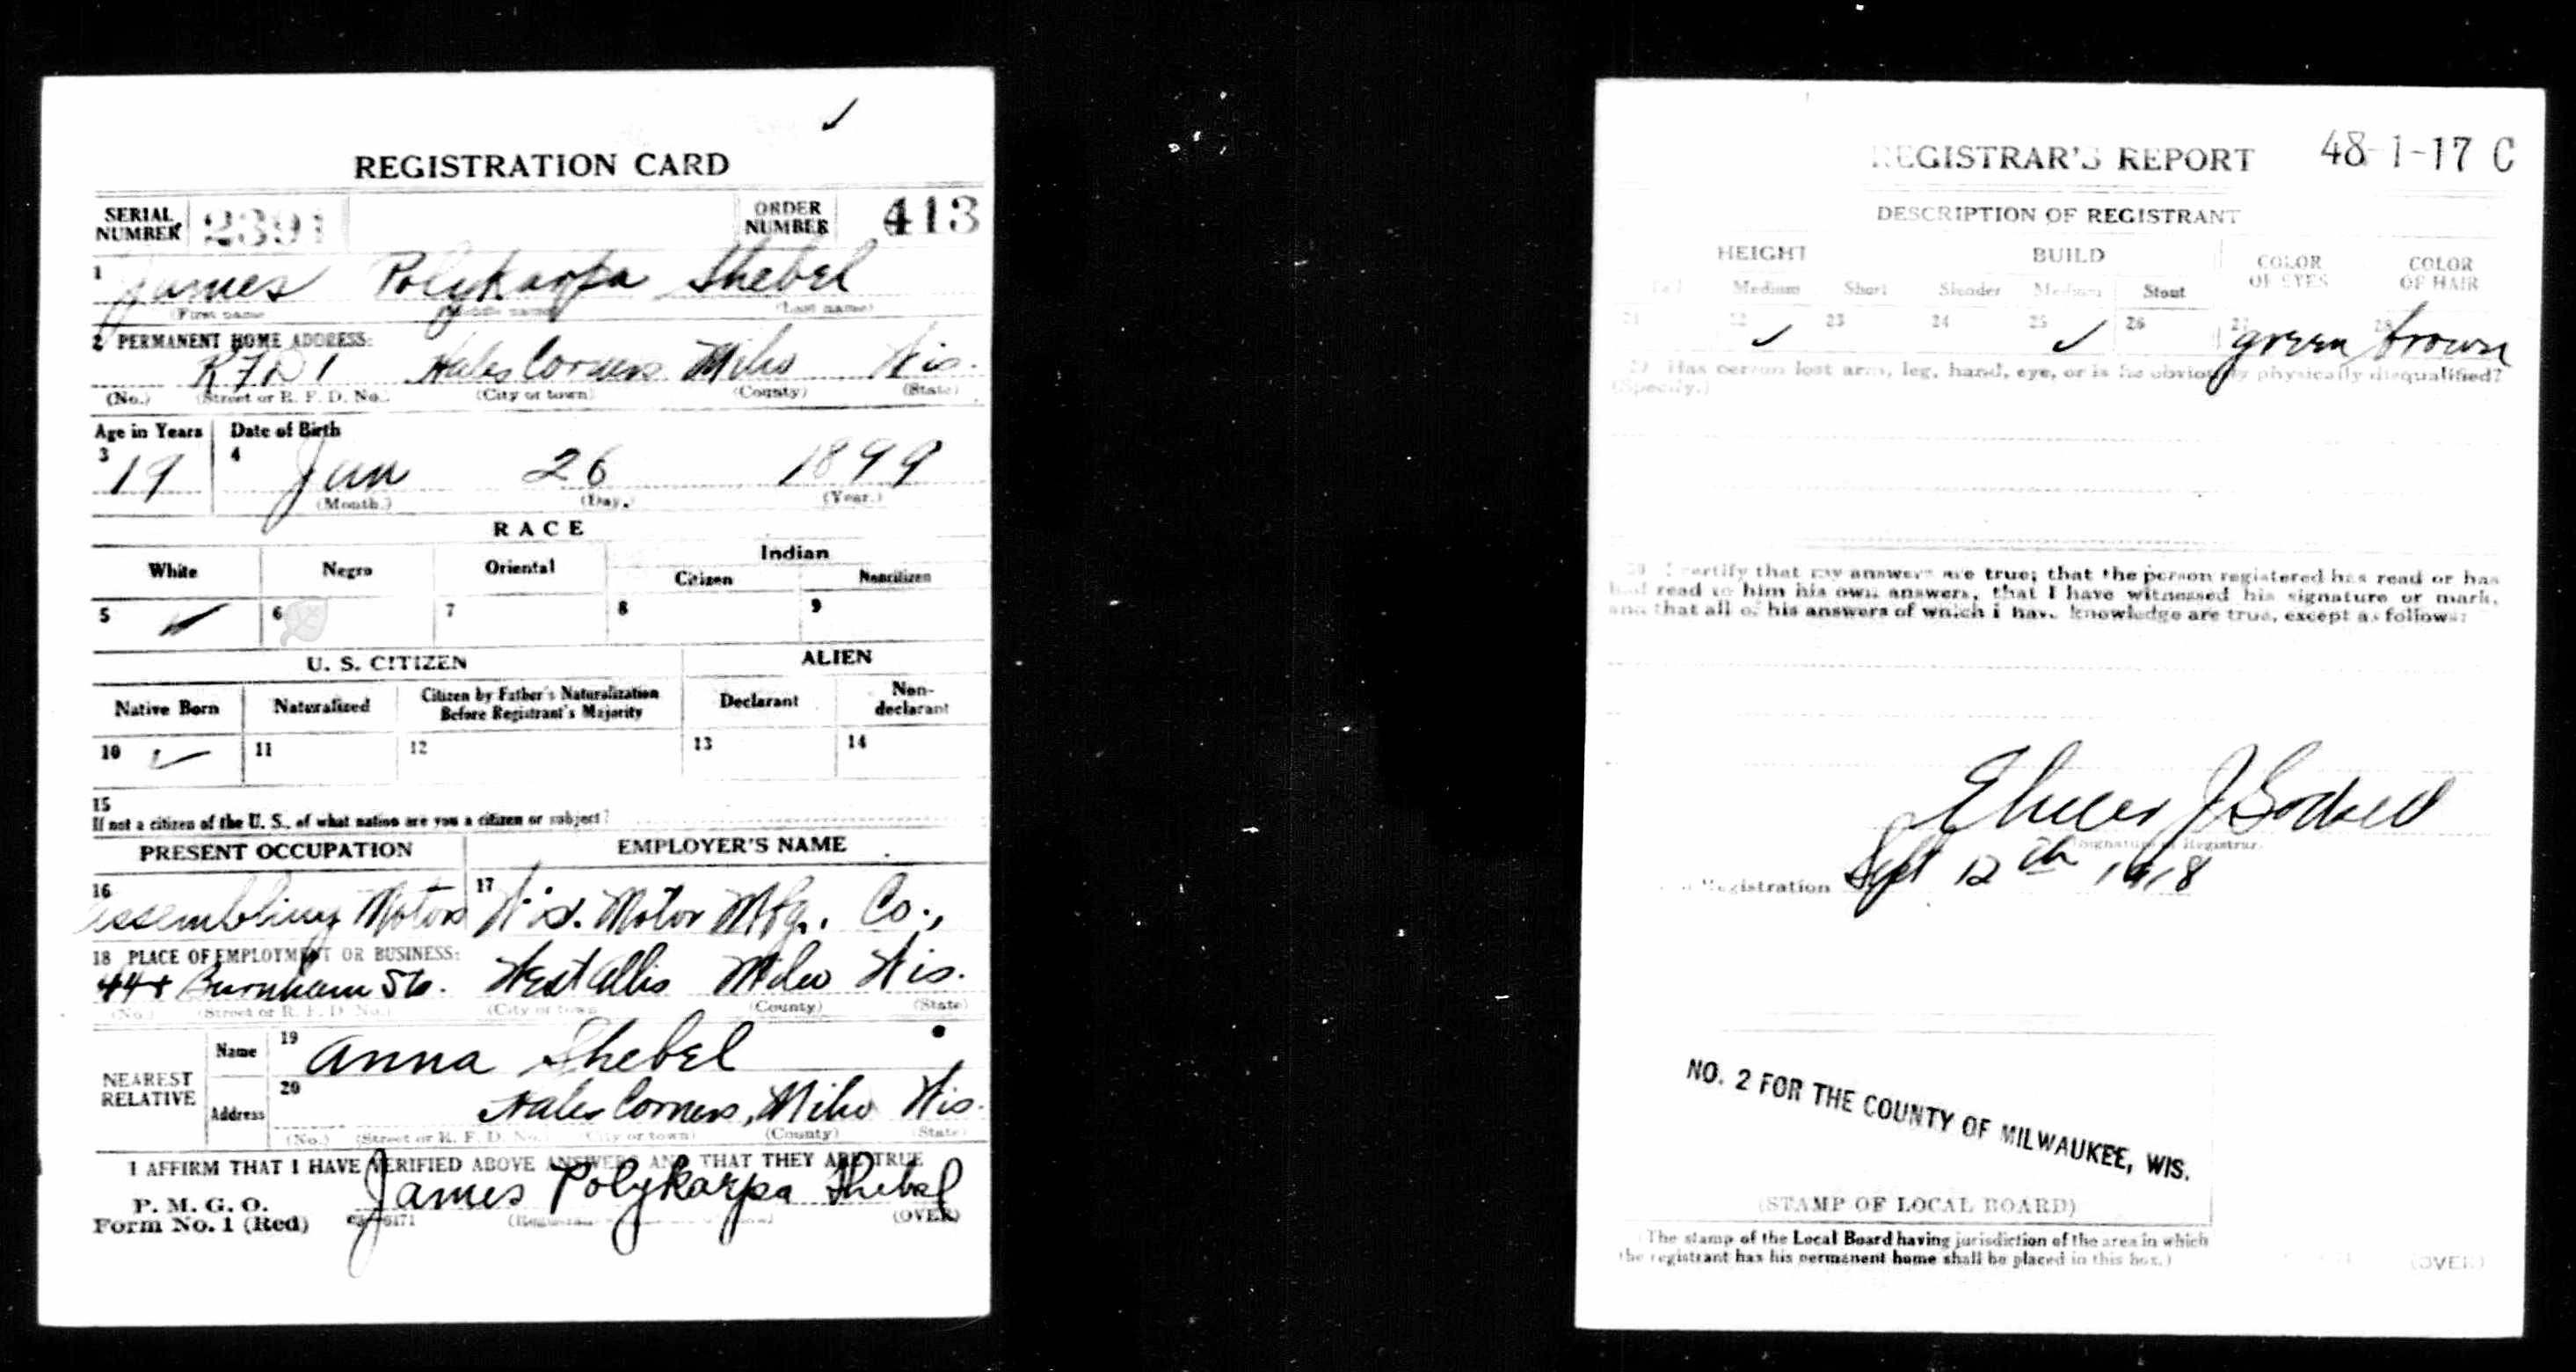 REGISTRATION CARD
SERIAL NUMBER 2391 ORDER NUMBER 413
1 James Polykarpa Shebel
(First name) (Middle name) (Last name)
2 PERMANENT HOME ADDRESS:
RFD 1 Hales Corners Milw Wis.
(No.) (Street or R. F. D. No.) (City or town) (County) (State)
Age in Years Date of Birth
3 19 4 Jan 26 1899
(Month.) (Day.) (Year.)
RACE
White Negro Oriental Indian
Citizen Noncitizen
5 ✓ 6 7 8 9
U. S. CITIZEN ALIEN
Native Born Naturalized Citizen by Father's Naturalization Before Registrant's Majority Declarant Non-declarant
10 ✓ 11 12 13 14
15
If not a citizen of the U. S., of what nation are you a citizen or subject?
PRESENT OCCUPATION EMPLOYER'S NAME
16 assembling Motors 17 Wis. Motor Mfg. Co.,
18 PLACE OF EMPLOYMENT OR BUSINESS:
Burnham St. West Allis Milw Wis.
(No.) (Street or R. F. D. No.) (City or town) (County) (State)
NEAREST RELATIVE
Name 19 Anna Shebel
Address 20 Hales Corners, Milw Wis.
(No.) (Street or R. F. D. No.) (City or town) (County) (State)
I AFFIRM THAT I HAVE VERIFIED ABOVE ANSWERS AND THAT THEY ARE TRUE
P. M. G. O.
Form No. 1 (Red) James Polykarpa Shebel
(OVER)
REGISTRAR'S REPORT 48-1-17 C
DESCRIPTION OF REGISTRANT
HEIGHT BUILD COLOR OF EYES COLOR OF HAIR
Tall Medium Short Slender Medium Stout
21 22 ✓ 23 24 25 ✓ 26 27 green 28 brown
29 Has person lost arm, leg, hand, eye, or is he obviously physically disqualified?
(Specify.)
30 I certify that my answers are true; that the person registered has read or has
had read to him his own answers, that I have witnessed his signature or mark,
and that all of his answers of which I have knowledge are true, except as follows:
(Signature of Registrar.
Registration Sept 12th 1918
NO. 2 FOR THE COUNTY OF MILWAUKEE, WIS.
(STAMP OF LOCAL BOARD)
(The stamp of the Local Board having jurisdiction of the area in which
the registrant has his permanent home shall be placed in this box.)
(OVER)